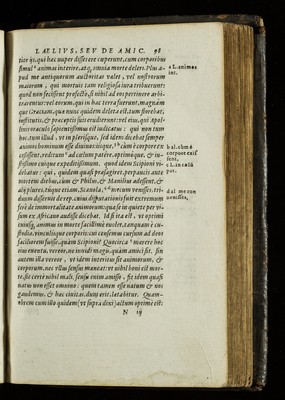 LAELIVS, SEV DE AMIC. 98
tior ijs, qui hæc nuper disserere cœperunt, cum corporibus
simul ª animas interire, atq; omnia morte deleri. Plus a-
pud me antiquorum auctoritas valet, vel nostrorum
maiorum, qui mortuis tam religiosa iura tribuerunt:
quod non fecissent profecto, si nihil ad eos pertinere arbi-
trarentur: vel eorum, qui in hac terra fuerunt, magnám
que Græciam, quæ nunc quidem deleta est, tum florebat,
institutis, & præceptis suis erudierunt: vel eius, qui Apol-
linis oraculo sapientissimus est iudicatus: qui non tum
hoc, tum illud, vt in plerisque, sed idem dicebat semper
animos hominum esse diuinos: iisque, ᵇ cùm è corpore ex
cessissent, reditum ᶜ ad cælum patére, optimoque, & iu-
stissimo cuique expeditissimum. quod idem Scipioni vi-
debatur: qui, quidem quasi præsagiret, perpaucis ante
mortem diebus, cùm & Philus, & Manilius adessent, &
alij plures, túque etiam, Scæuola, ᵈ mecum venisses, tri-
duum disseruit de rep. cuius disputationis fuit extremum
ferè de immortalitate animorum: quæ se in quiete per vi-
sum ex Africano audisse dicebat. Id si ita est, vt optimi
cuiusq; animus in morte facillimè euolet, tanquam è cu-
stodia, vinculisque corporis: cui censemus cursum ad deos
faciliorem fuisse, quàm Scipioni? Quocirca mœrere hoc
eius euentu, vereor, ne inuidi magis, quàm amici sit. sin
autem illa verior, vt idem interitus sit animorum, &
corporum, nec vllus sensus maneat: vt nihil boni est mor-
te, sic certè nihil mali. sensu enim amisso, fit idem quasi
natus non esset omnino: quem tamen esse natum & nos
gaudemus: & hæc ciuitas, dum erit, lætabitur. Quam-
obrem cum illo quidem (vt supra dixi) actum optimè est:
N ij
a L. animas
int.
b al. cùm è
corpore exis
sent,
c L. in cælū
pat.
d al. mecum
venisses,